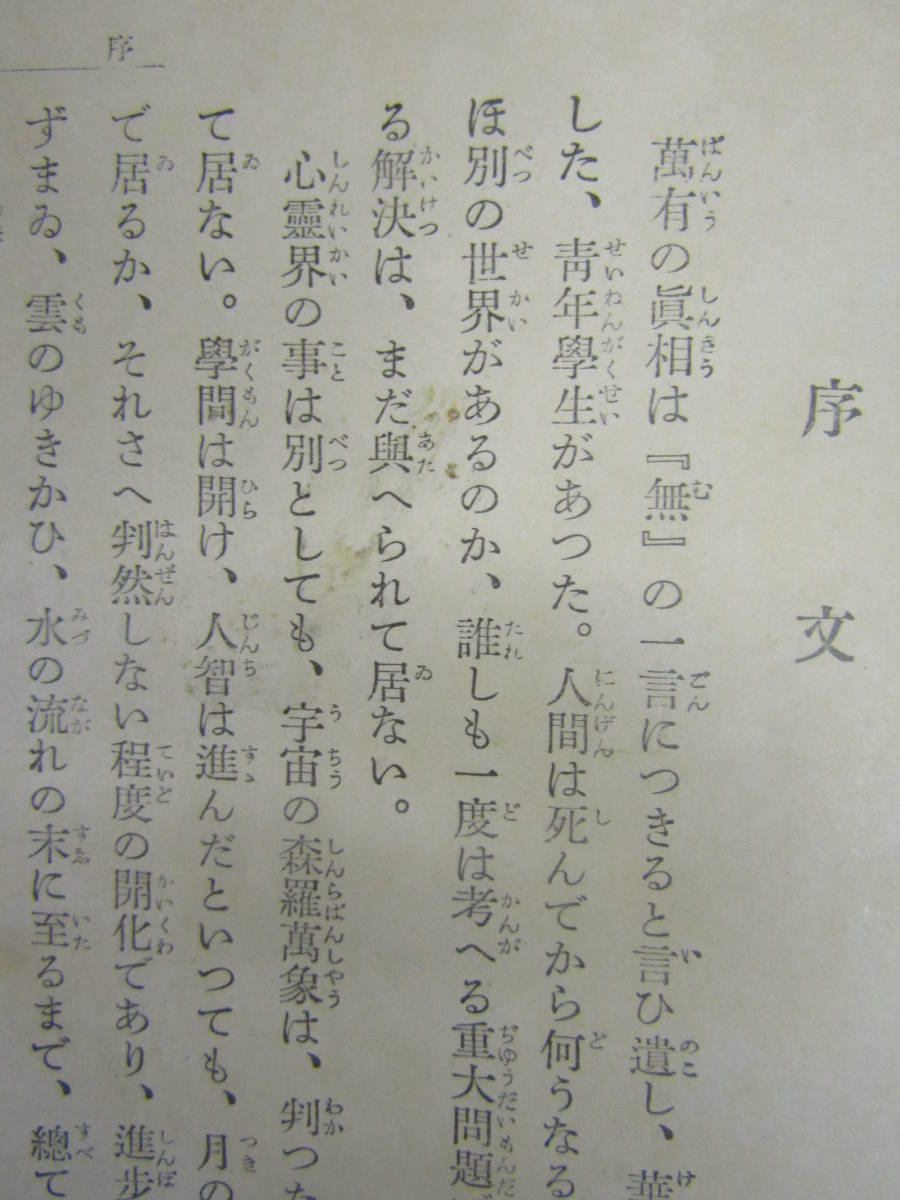 序
序文
萬有の眞相は『無』の一言につきると言ひ遺し、華
した、靑年學生があつた。人間は死んでから何うなる
ほ別の世界があるのか、誰しも一度は考へる重大問題
る解決は、まだ與へられて居ない。
心靈界の事は別としても、宇宙の森羅萬象は、判つた
て居ない。學問は開け、人智は進んだといつても、月の
で居るか、それさへ判然しない程度の開化であり、進步
ずまゐ、雲のゆきかひ、水の流れの末に至るまで、總て